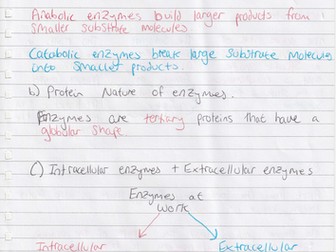 Anabolic enzymes build larger products from
smaller substrate molecules
Catabolic enzymes break large substrate molecules
into smaller products
b) Protein Nature of enzymes.
Enzymes are tertiary proteins that have a
globular shape
C) Intracellular enzymes + Extracellular enzymes
Enzymes at
work
Intracellular Extracellular